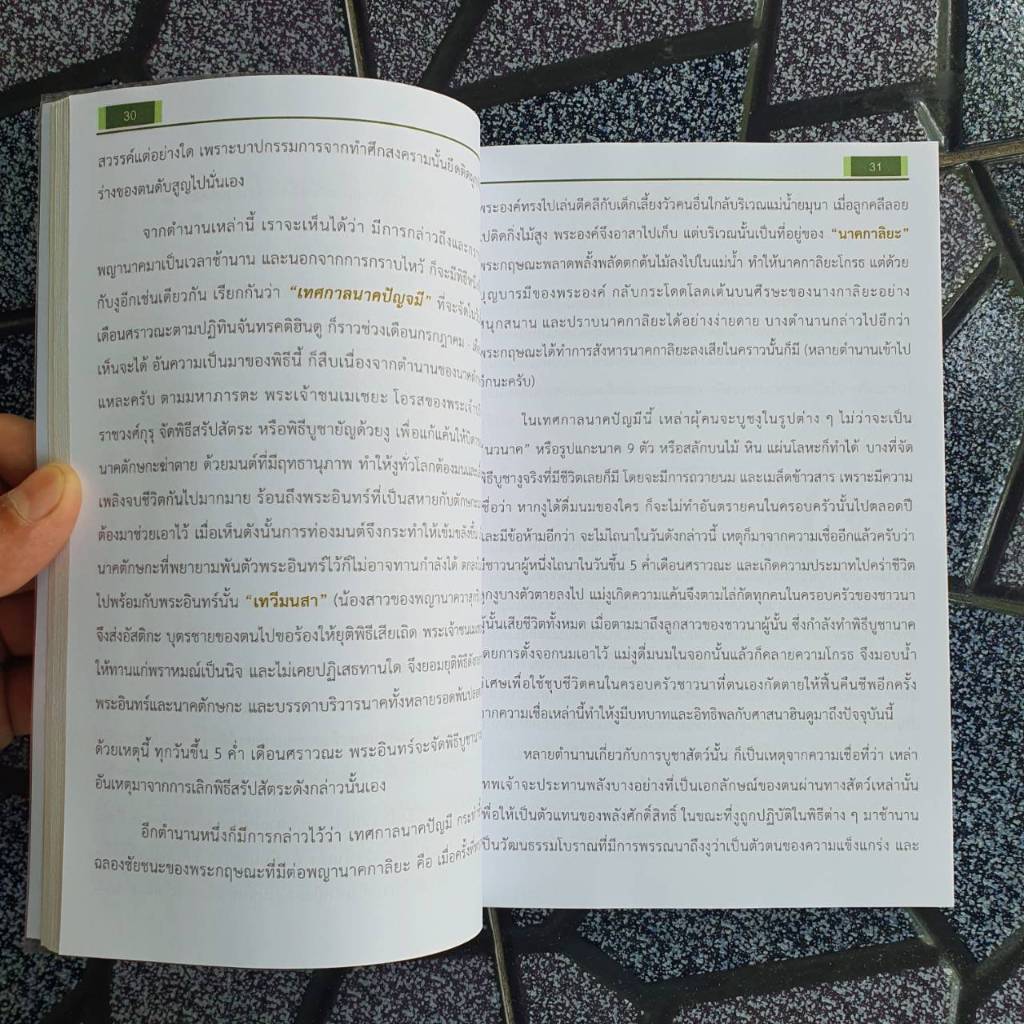 30
สวรรค์แต่อย่างใด เพราะบาปกรรมการจากทำศึกสงครามนั้นยึดติด
ร่างของตนดับสูญไปนั่นเอง
จากตำนานเหล่านี้ เราจะเห็นได้ว่า มีการกล่าวถึงและ
พญานาคมาเป็นเวลาช้านาน และนอกจากการกราบไหว้ ก็จะมีพิธี
กับงูอีกเช่นเดียวกัน เรียกกันว่า “เทศกาลนาคปัญจมี” ที่จะจัดใน
เดือนศราวณะตามปฏิทินจันทรคติฮินดู ก็ราวช่วงเดือนกรกฎาคม -
เห็นจะได้ อันความเป็นมาของพิธีนี้ ก็สืบเนื่องจากตำนานของนาค
แหละครับ ตามมหาภารตะ พระเจ้าชนเมเชยะ โอรสของพระเจ้า
ราชวงศ์กุรุ จัดพิธีสรัปสัตระ หรือพิธีบูชายัญด้วยงู เพื่อแก้แค้นให้บิดา
นาคตักษกะฆ่าตาย ด้วยมนต์ที่มีฤทธานุภาพ ทำให้งูทั่วโลกต้องมนต์
เพลิงจบชีวิตกันไปมากมาย ร้อนถึงพระอินทร์ที่เป็นสหายกับตักษกะ
ต้องมาช่วยเอาไว้ เมื่อเห็นดังนั้นการท่องมนต์จึงกระทำให้เข้มขลังขึ้น
นาคตักษกะที่พยายามพันตัวพระอินทร์ไว้ก็ไม่อาจทานกำลังได้
ไปพร้อมกับพระอินทร์นั้น “เทวีมนสา” (น้องสาวของพญานาควาสุกรี
จึงส่งอัสติกะ บุตรชายของตนไปขอร้องให้ยุติพิธีเสียเถิด พระเจ้าชนเมเชยะ
ให้ทานแก่พราหมณ์เป็นนิจ และไม่เคยปฏิเสธทานใด จึงยอมยุติพิธี
พระอินทร์และนาคตักษกะ และบรรดาบริวารนาคทั้งหลายรอดพ้น
ด้วยเหตุนี้ ทุกวันขึ้น 5 ค่ำ เดือนศราวณะ พระอินทร์จะจัดพิธีบูชา
อันเหตุมาจากการเลิกพิธีสรัปสัตระดังกล่าวนั้นเอง
อีกตำนานหนึ่งก็มีการกล่าวไว้ว่า เทศกาลนาคปัญมี
ฉลองชัยชนะของพระกฤษณะที่มีต่อพญานาคกาลิยะ คือ เมื่อครั้ง
31
พระองค์ทรงไปเล่นตีคลีกับเด็กเลี้ยงวัวคนอื่นใกล้บริเวณแม่น้ำยมุนา เมื่อลูกคลีลอย
ไปติดกิ่งไม้สูง พระองค์จึงอาสาไปเก็บ แต่บริเวณนั้นเป็นที่อยู่ของ “นาคกาลิยะ”
พระกฤษณะพลาดพลั้งพลัดตกต้นไม้ลงไปในแม่น้ำ ทำให้นาคกาลิยะโกรธ แต่ด้วย
บุญบารมีของพระองค์ กลับกระโดดโลดเต้นบนศีรษะของนางกาลิยะอย่าง
สนุกสนาน และปราบนาคกาลิยะได้อย่างง่ายดาย บางตำนานกล่าวไปอีกว่า
พระกฤษณะได้ทำการสังหารนาคกาลิยะลงเสียในคราวนั้นก็มี (หลายตำนานเข้าไป
อีกนะครับ)
ในเทศกาลนาคปัญมีนี้ เหล่าผู้คนจะบูชางูในรูปต่าง ๆ ไม่ว่าจะเป็น
“นวนาค” หรือรูปแกะนาค 9 ตัว หรือสลักบนไม้ หิน แผ่นโลหะก็ทำได้ บางที่จัด
พิธีบูชางูจริงที่มีชีวิตเลยก็มี โดยจะมีการถวายนม และเมล็ดข้าวสาร เพราะมีความ
เชื่อว่า หากงูได้ดื่มนมของใคร ก็จะไม่ทำอันตรายคนในครอบครัวนั้นไปตลอดปี
และมีข้อห้ามอีกว่า จะไม่ไถนาในวันดังกล่าวนี้ เหตุก็มาจากความเชื่ออีกแล้วครับว่า
มีชาวนาผู้หนึ่งไถนาในวันขึ้น 5 ค่ำเดือนศราวณะ และเกิดความประมาทไปคร่าชีวิต
ลูกงูบางตัวตายลงไป แม่งูเกิดความแค้นจึงตามไล่กัดทุกคนในครอบครัวของชาวนา
ผู้นั้นเสียชีวิตทั้งหมด เมื่อตามมาถึงลูกสาวของชาวนาผู้นั้น ซึ่งกำลังทำพิธีบูชานาค
โดยการตั้งจอกนมเอาไว้ แม่งูดื่มนมในจอกนั้นแล้วก็คลายความโกรธ จึงมอบน้ำ
วิเศษเพื่อใช้ชุบชีวิตคนในครอบครัวชาวนาที่ตนเองกัดตายให้ฟื้นคืนชีพอีกครั้ง
จากความเชื่อเหล่านี้ทำให้งูมีบทบาทและอิทธิพลกับศาสนาฮินดูมาถึงปัจจุบันนี้
หลายตำนานเกี่ยวกับการบูชาสัตว์นั้น ก็เป็นเหตุจากความเชื่อที่ว่า เหล่า
เทพเจ้าจะประทานพลังบางอย่างที่เป็นเอกลักษณ์ของตนผ่านทางสัตว์เหล่านั้น
เพื่อให้เป็นตัวแทนของพลังศักดิ์สิทธิ์ ในขณะที่งูถูกปฏิบัติในพิธีต่าง ๆ มาช้านาน
เป็นวัฒนธรรมโบราณที่มีการพรรณนาถึงงูว่าเป็นตัวตนของความแข็งแกร่ง และ